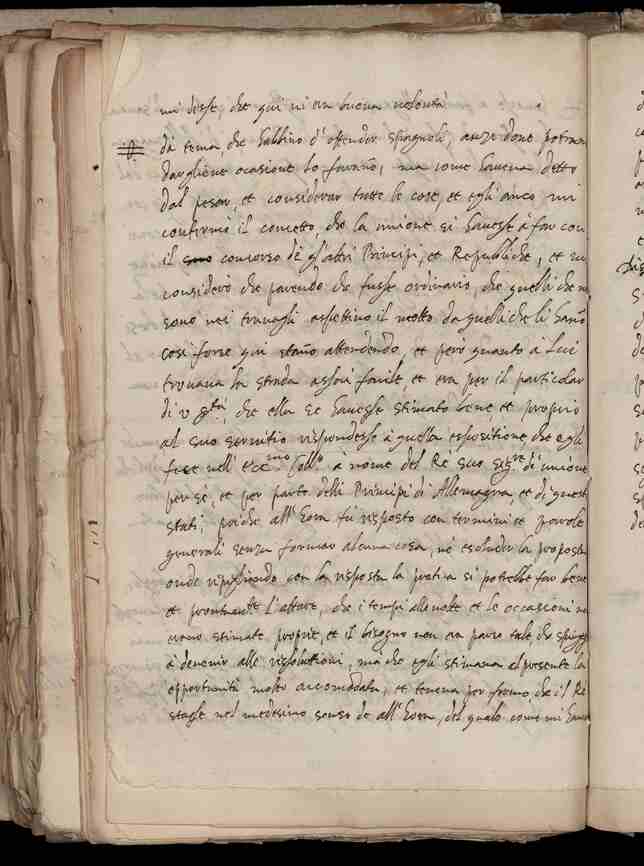 mi disse, che qui vi era buona volontà
di tema, che habbino d'offender spagnoli, anzi dove potran
darghene ocasione lo farano, ma come haveva detto
dal pesar, et considerar tutte le cose, et egli anco mi
confirmò il concetto, che la unione si havesse à far con
il concorso de gl'altri Principi, et Republiche, et mi
considerò che parendo che fusse ordinario, che quelli che
sono nei travagli aspettino il motto da quelli che li hano
così forse qui stano attendendo, et però quanto à lui
trovava la strada assai facile et era per il particolar
di v. s.tà, che ella se havesse stimato bene et proprio
al suo servitio rispondesse à questa espositione, che egli
fece nell' Ecc.mo Coll.o à nome del Rè suo sig.re di unione
per sé, et per parte delli Principi di Allemagna, et di questi
stati; poiche all' hora fu risposto con termini et parole
generali senza formar alcuna cosa, ne escluder la proposta
onde ripigliando con la risposta la pratica si potrebbe far bene
et prontamente l'affare, che i tempi alle volte et le occasioni
erano stimate proprie, et il bisogno non era parso tale, che
à devenir alle rissolutioni, ma che egli stimava al presente la
opportunità molto accomodata, et teneva per fermo, che il Rè
stasse nel medesimo senso de all' hora, del quale come mi